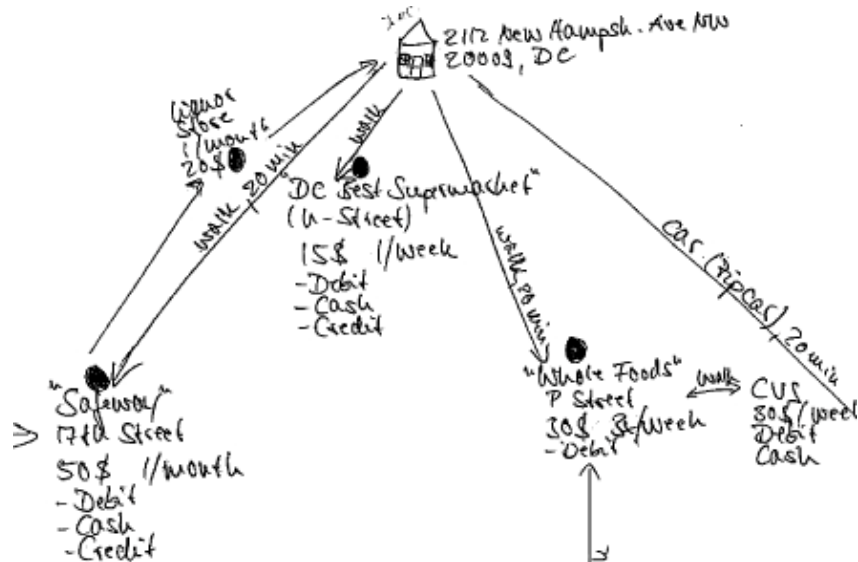 2112 New Hampsh. Ave NW
20009, DC
Liquor
Store
1/month
20$
walk, 20 min
walk
"DC Best Supermarket"
(U-Street)
15$ 1/week
- Debit
- Cash
- Credit
walk, 20 min
car (ZipCar), 20 min
"Safeway"
17th Street
50$ 1/month
- Debit
- Cash
- Credit
"Whole Foods"
P Street
30$ 3x/week
- Debit
walk
CVS
30$/week
Debit
Cash